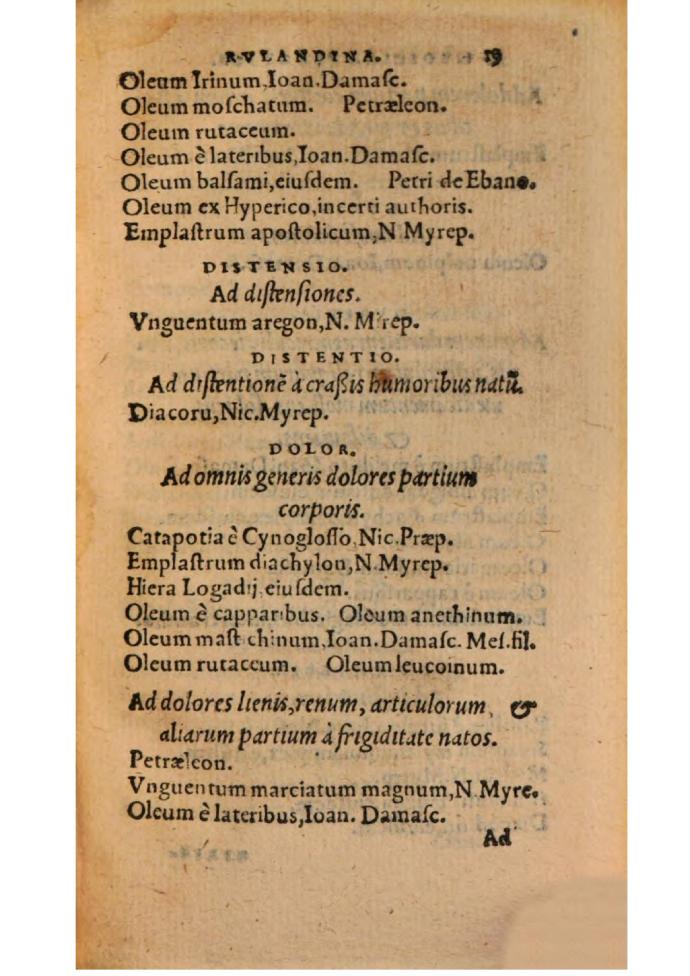 RVLANDINA. 19
Oleum Irinum, Ioan. Damaſc.
Oleum moſchatum. Petræleon.
Oleum rutaceum.
Oleum è lateribus, Ioan. Damaſc.
Oleum balſami, eiuſdem. Petri de Ebano.
Oleum ex Hyperico, incerti authoris.
Emplaſtrum apoſtolicum, N Myrep.
DISTENSIO.
Ad diſtenſiones.
Vnguentum aregon, N. Mirep.
DISTENTIO.
Ad diſtentionẽ à craßis humoribus natũ.
Diacoru, Nic. Myrep.
DOLOR.
Ad omnis generis dolores partium
corporis.
Catapotia è Cynogloſſo, Nic. Præp.
Emplaſtrum diachylon, N. Myrep.
Hiera Logadij, eiuſdem.
Oleum è capparibus. Oleum anethinum.
Oleum maſt chinum, Ioan. Damaſc. Meſ. fil.
Oleum rutaceum. Oleum leucoinum.
Ad dolores lienis, renum, articulorum, &
aliarum partium à frigiditate natos.
Petræleon.
Vnguentum marciatum magnum, N Myre.
Oleum è lateribus, Ioan. Damaſc.
Ad